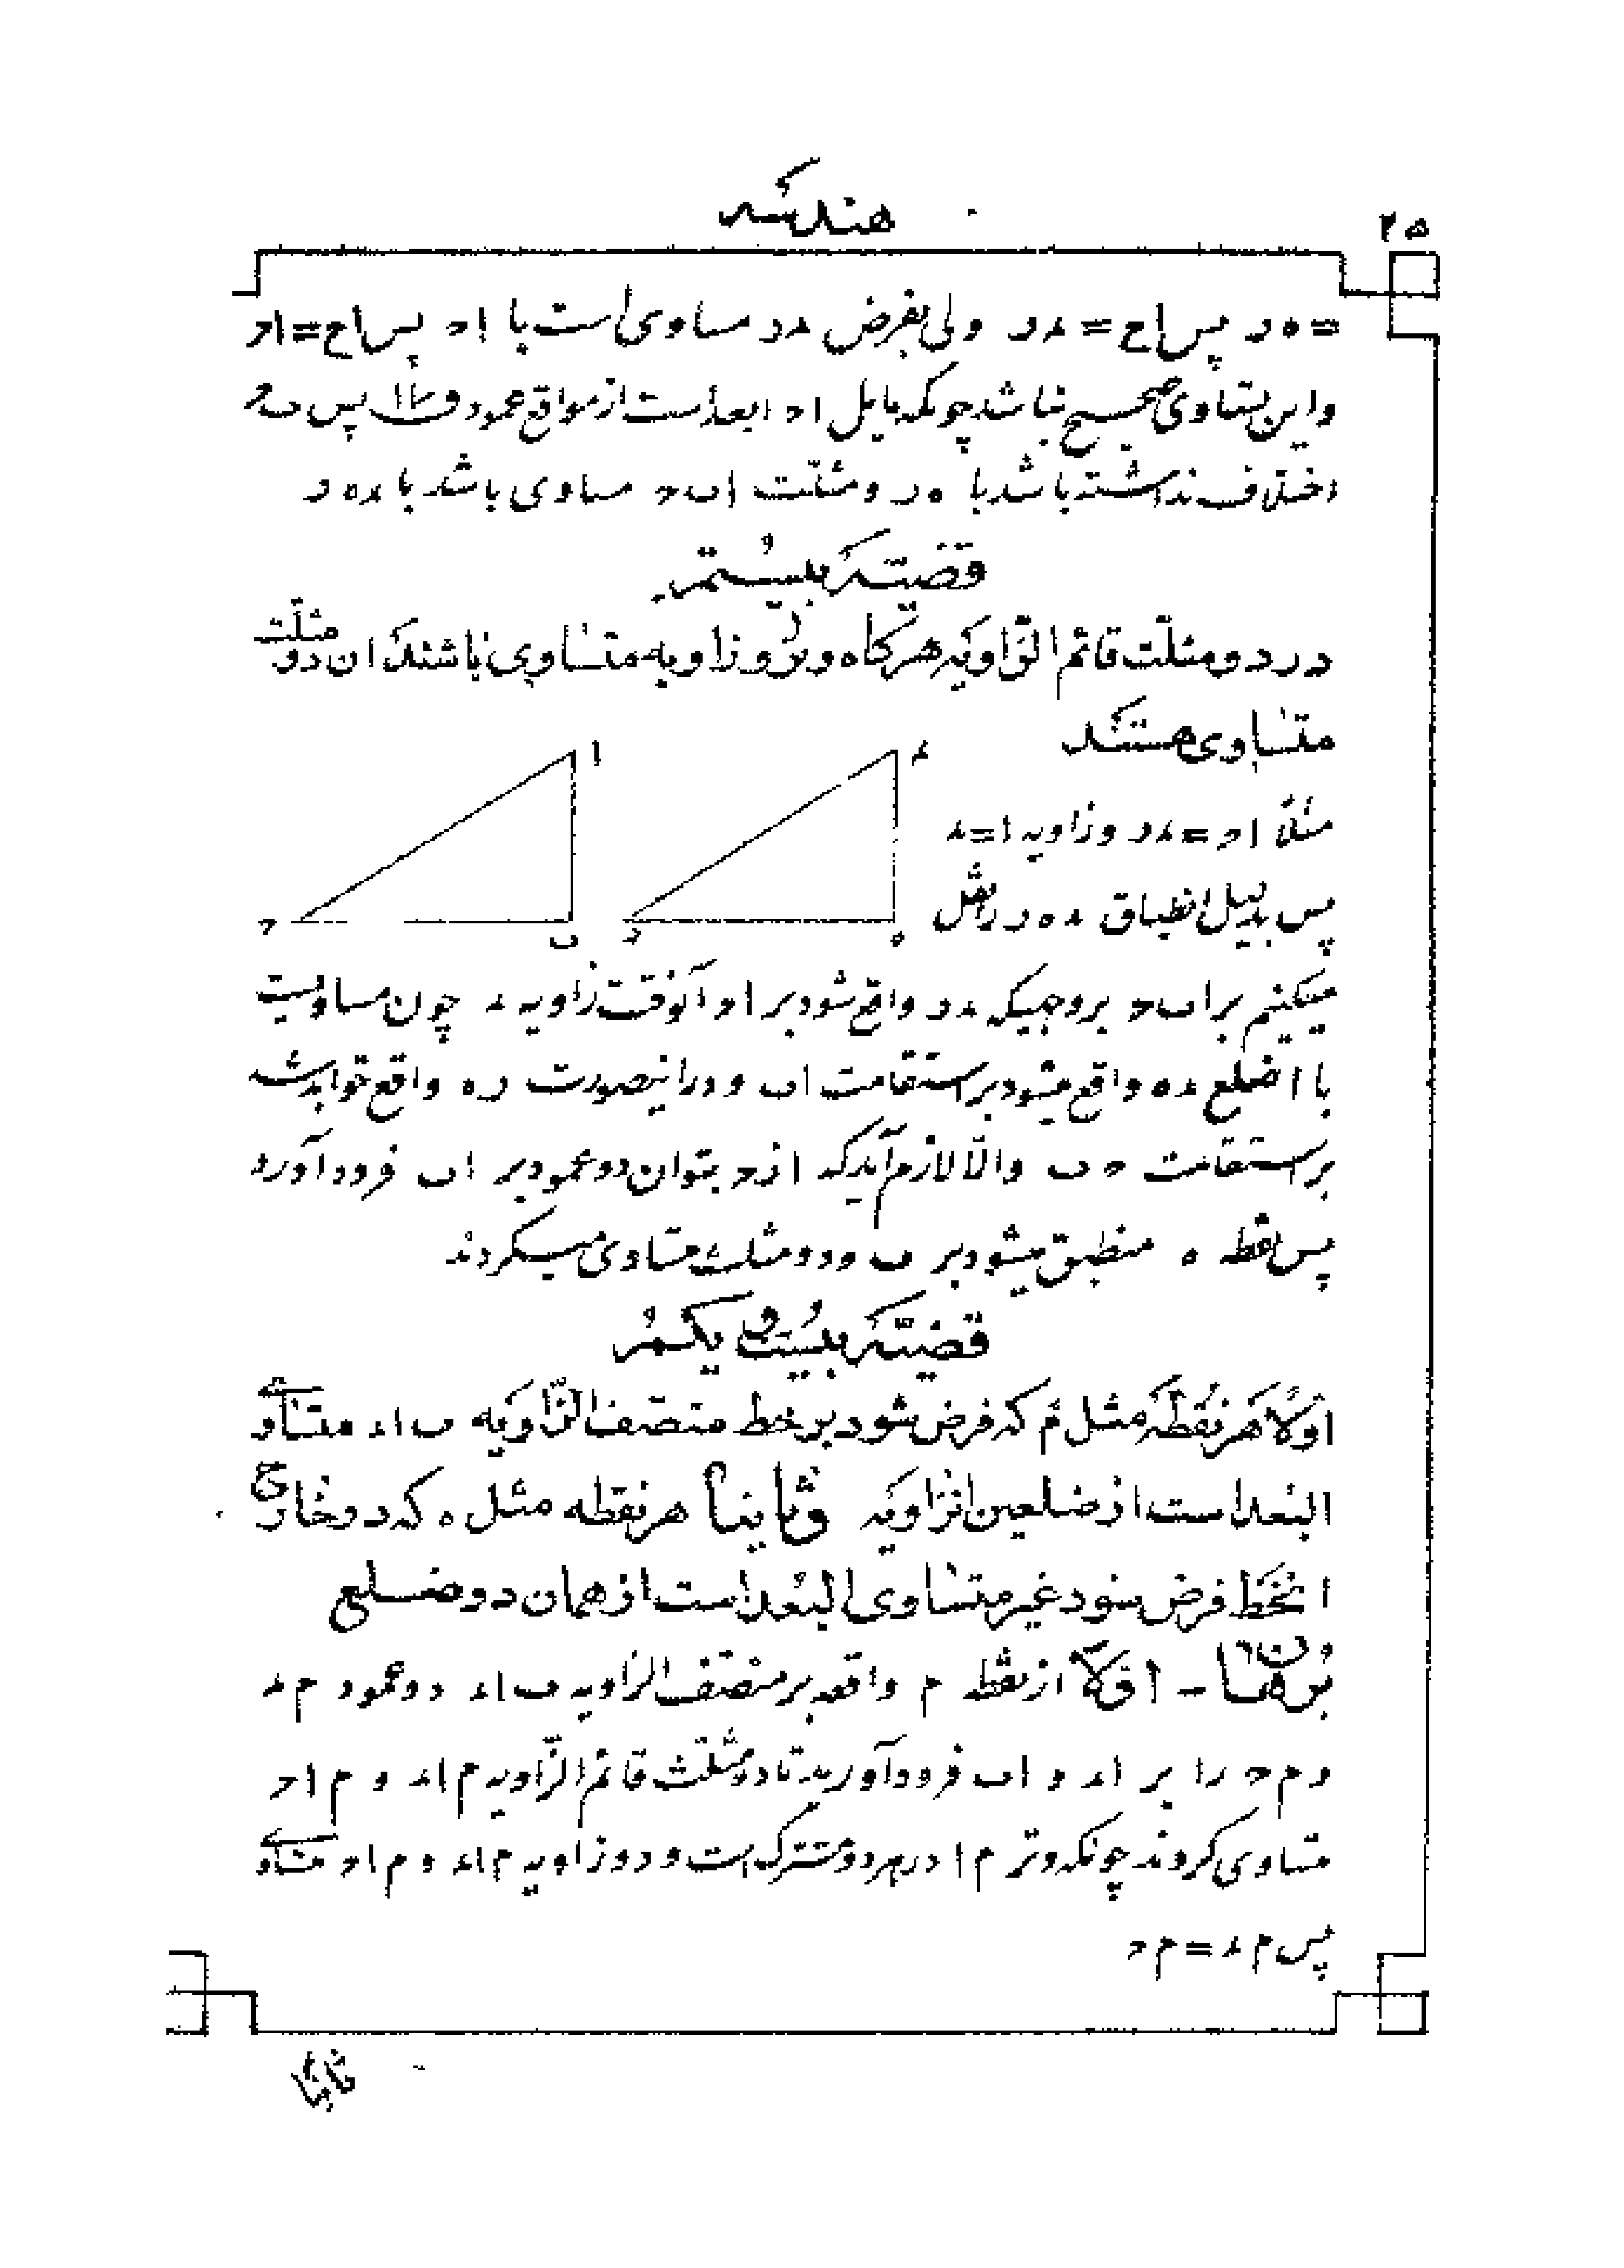 ۲۵
هندسه
= ه ر پس اح = ء ر ولی بفرض ء ر مساوی است با اح پس اح = اح
و این تساوی صحیح نباشد چونکه مایل اح ابعد است از مواقع عمود ق ۱۷ پس ب ح
اختلاف نداشته باشد با ه ر و مثلّث اب ح مساوی باشد با ء ه ر
قضیّه بیستم
در دو مثلّث قائم الزّاویه هرگاه وتر و زاویه متساوی باشند ان دو مثلّث
متساوی هستند
مثلاً اح = ء ر و زاویه ا = ء
پس بدلیل انطباق ء ه ر را نقل
میکنیم بر اب ح بروجهیکه ء ر واقع شود بر اح آنوقت زاویه ء چون مساویست
با ا ضلع ء ه واقع میشود بر استقامت اب و در اینصورت ر ه واقع خواهد شد
بر استقامت ح ب والّا لازم آید که از ح بتوان دو عمود بر اب فرود آورد
پس نقطه ه منطبق میشود بر ب و دو مثلث متساوی میگردند
قضیّه بیست و یکم
اوّلاً هر نقطه مثل م که فرض شود بر خط منتصف الزّاویه ب ا ء متساوی
البعد است از ضلعین انزاویه و ثانیاً هر نقطه مثل ه که در خارج
انخط فرض شود غیر متساوی البعد است از همان دو ضلع
برهان - اوّلاً از نقطه م واقعه بر منتصف الزاویه ب ا ء دو عمود م ء
و م ح را بر ا ء و اب فرود آورید تا دو مثلّث قائم الزّاویه م ا ء و م ا ح
متساوی گروند چونکه وتر م ا در هر دو مشترک است و دو زاویه م ا ء و م ا ح متساوی
پس م ء = م ح
ثانیاً
ا
ء
ح
ب
ر
ه